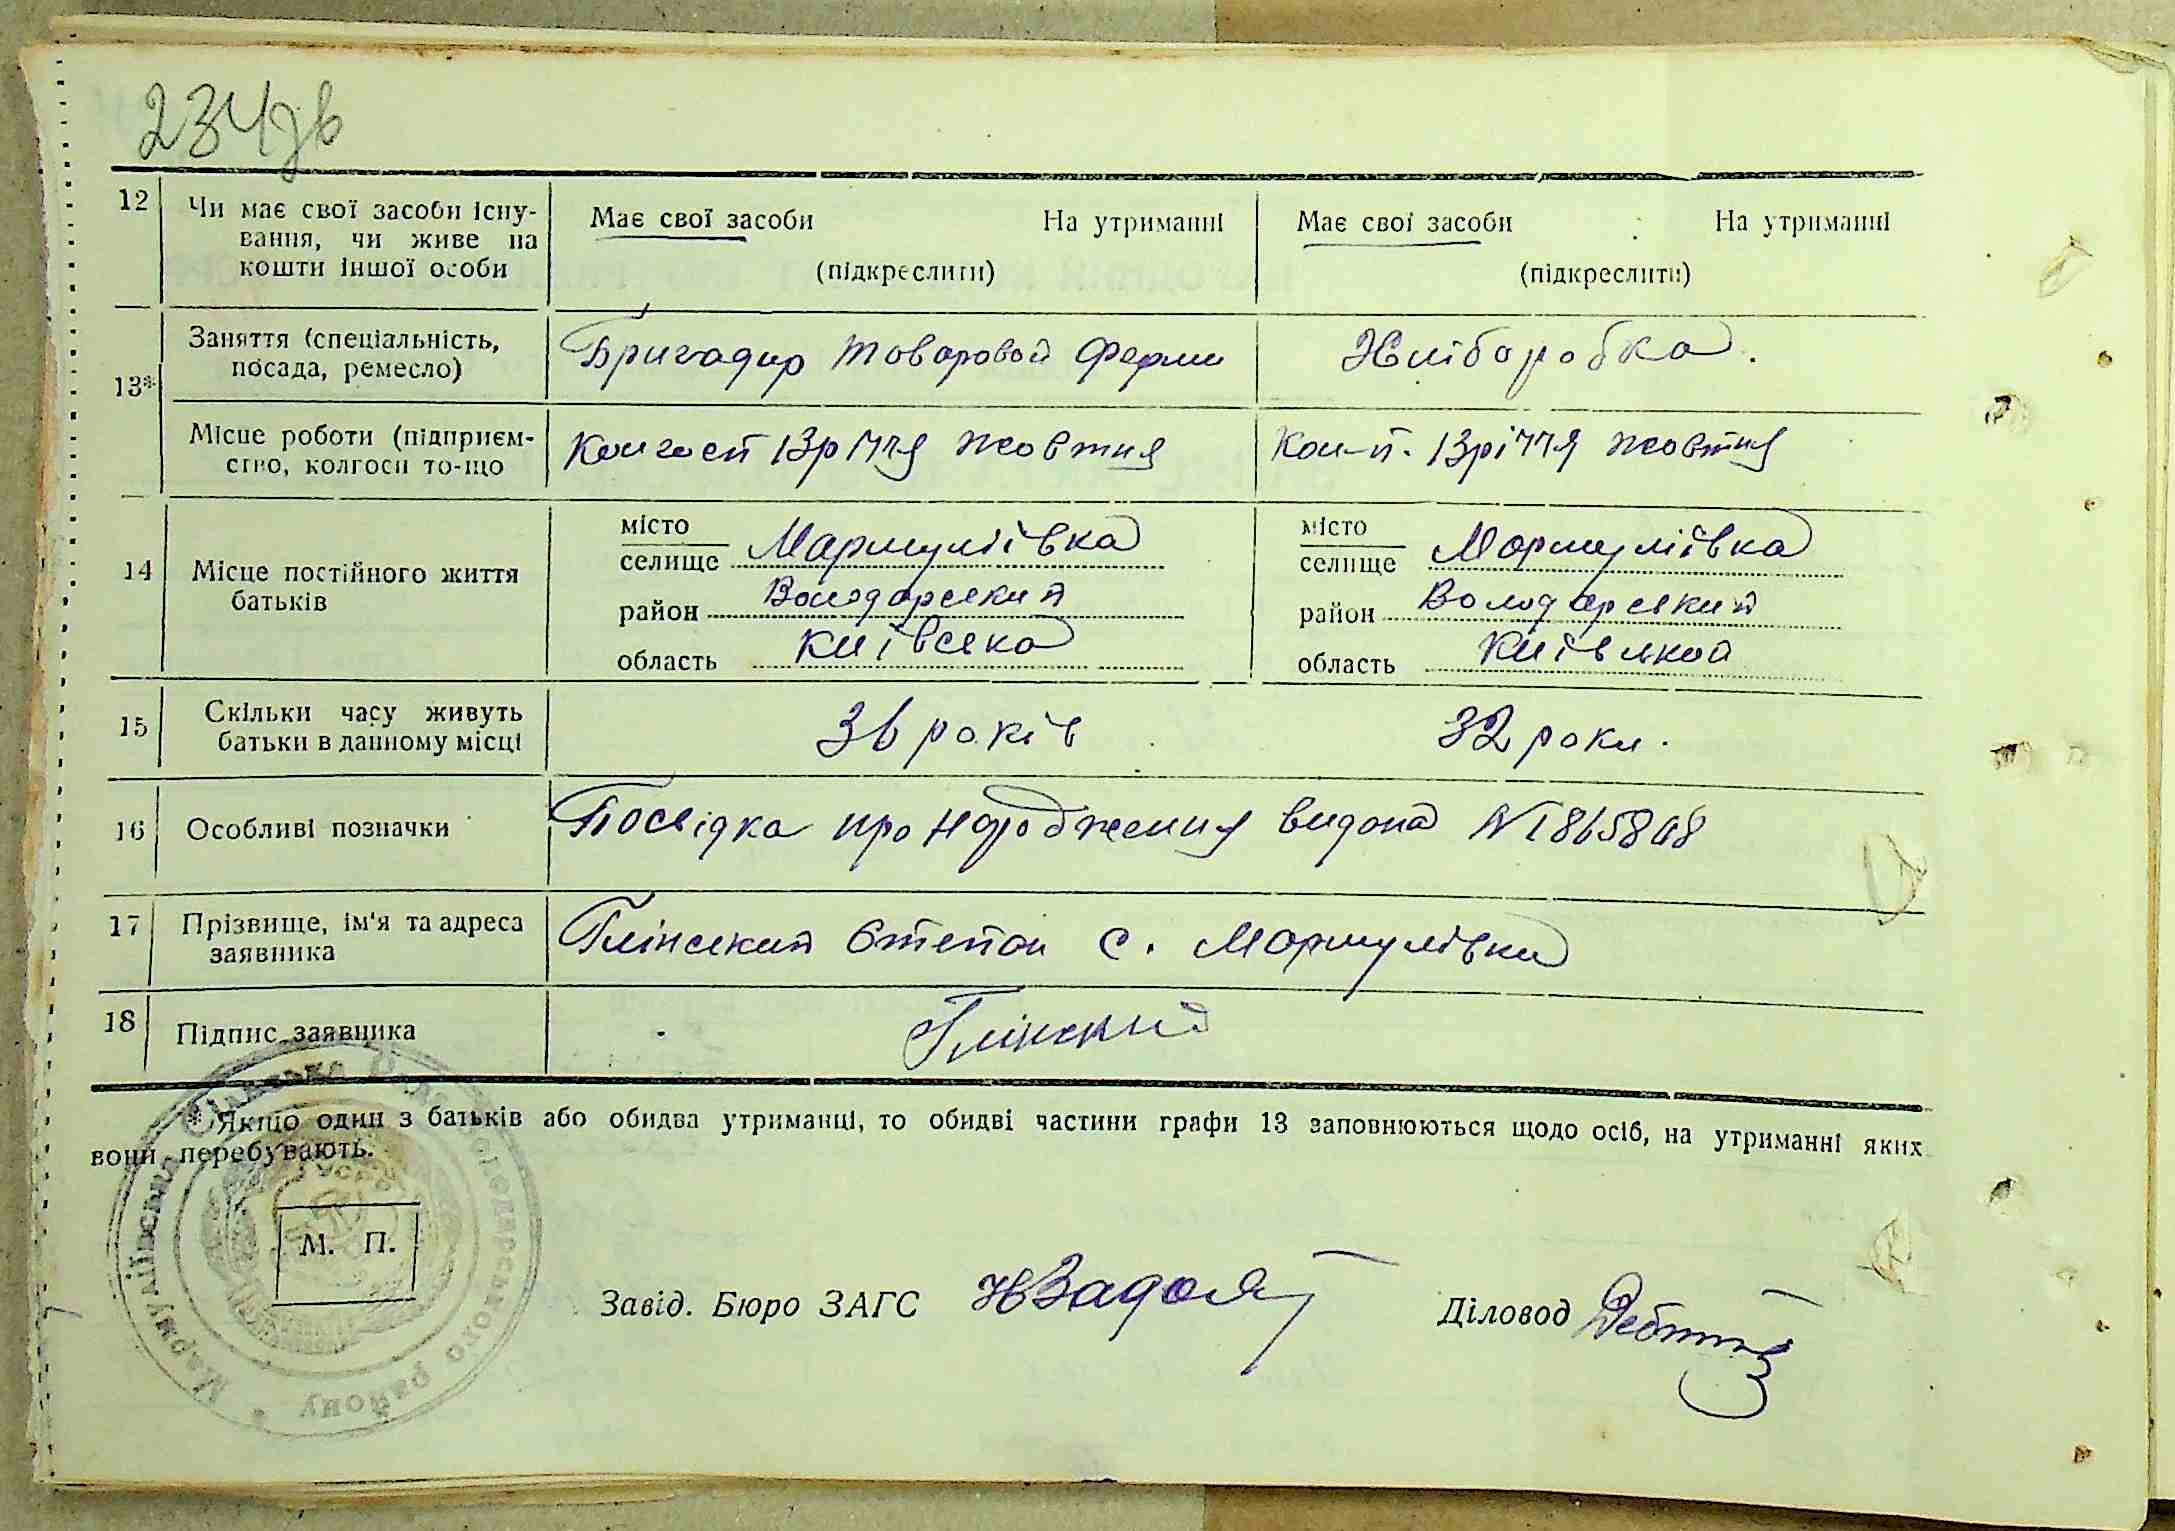 234зв
12 Чи має свої засоби існу- Має свої засоби На утриманні Має свої засоби На утриманні
вання, чи живе на
кошти іншої особи (підкреслити) (підкреслити)
13* Заняття (спеціальність, Бригадир товаровой ферми Хліборобка.
посада, ремесло)
Місце роботи (підприєм- Колгосп 13річчя жовтня Кол-п. 13річчя жовтня
ство, колгосп то-що
14 Місце постійного життя місто Мармуліївка місто Мармуліївка
батьків селище селище
район Володарский район Володарский
область Київська область
15 Скільки часу живуть 36 років 32 роки.
батьки в данному місці
16 Особливі позначки Посвідка про народження видона №
17 Прізвище, ім'я та адреса Глінский Степон с. Мормулівки
заявника
18 Підпис заявника Глінский
* Якщо один з батьків або обидва утриманці, то обидві частини графи 13 заповнюються щодо осіб, на утриманні яких
вони перебувають.
М. П.
Мармуліївська Сільська Рада Володарського району
УСРР
Завід. Бюро ЗАГС Діловод